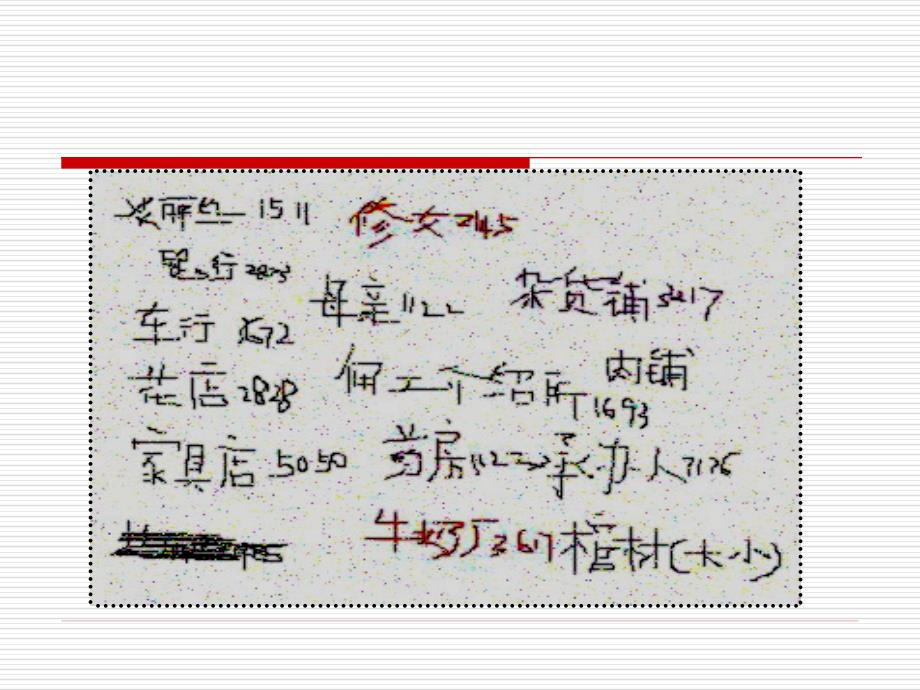 1511 修女2145
行2873
母亲1122 杂货铺3217
车行1672
肉铺
花店2828 佣工介绍所
1693
家具店5050 药房1122 承办人7176
牛奶厂2617 棺材(大小)